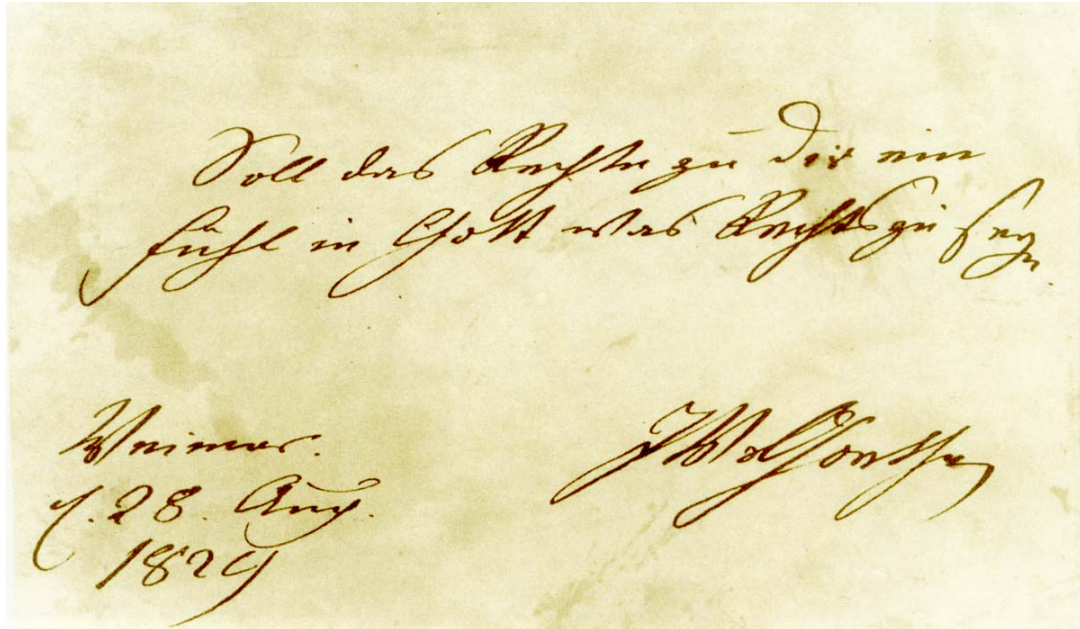 Soll das Rechte zu dir ein
fühl in Gott was Rechts zu seyn.
Weimar.
d. 28. Aug.
1829
JWvGoethe